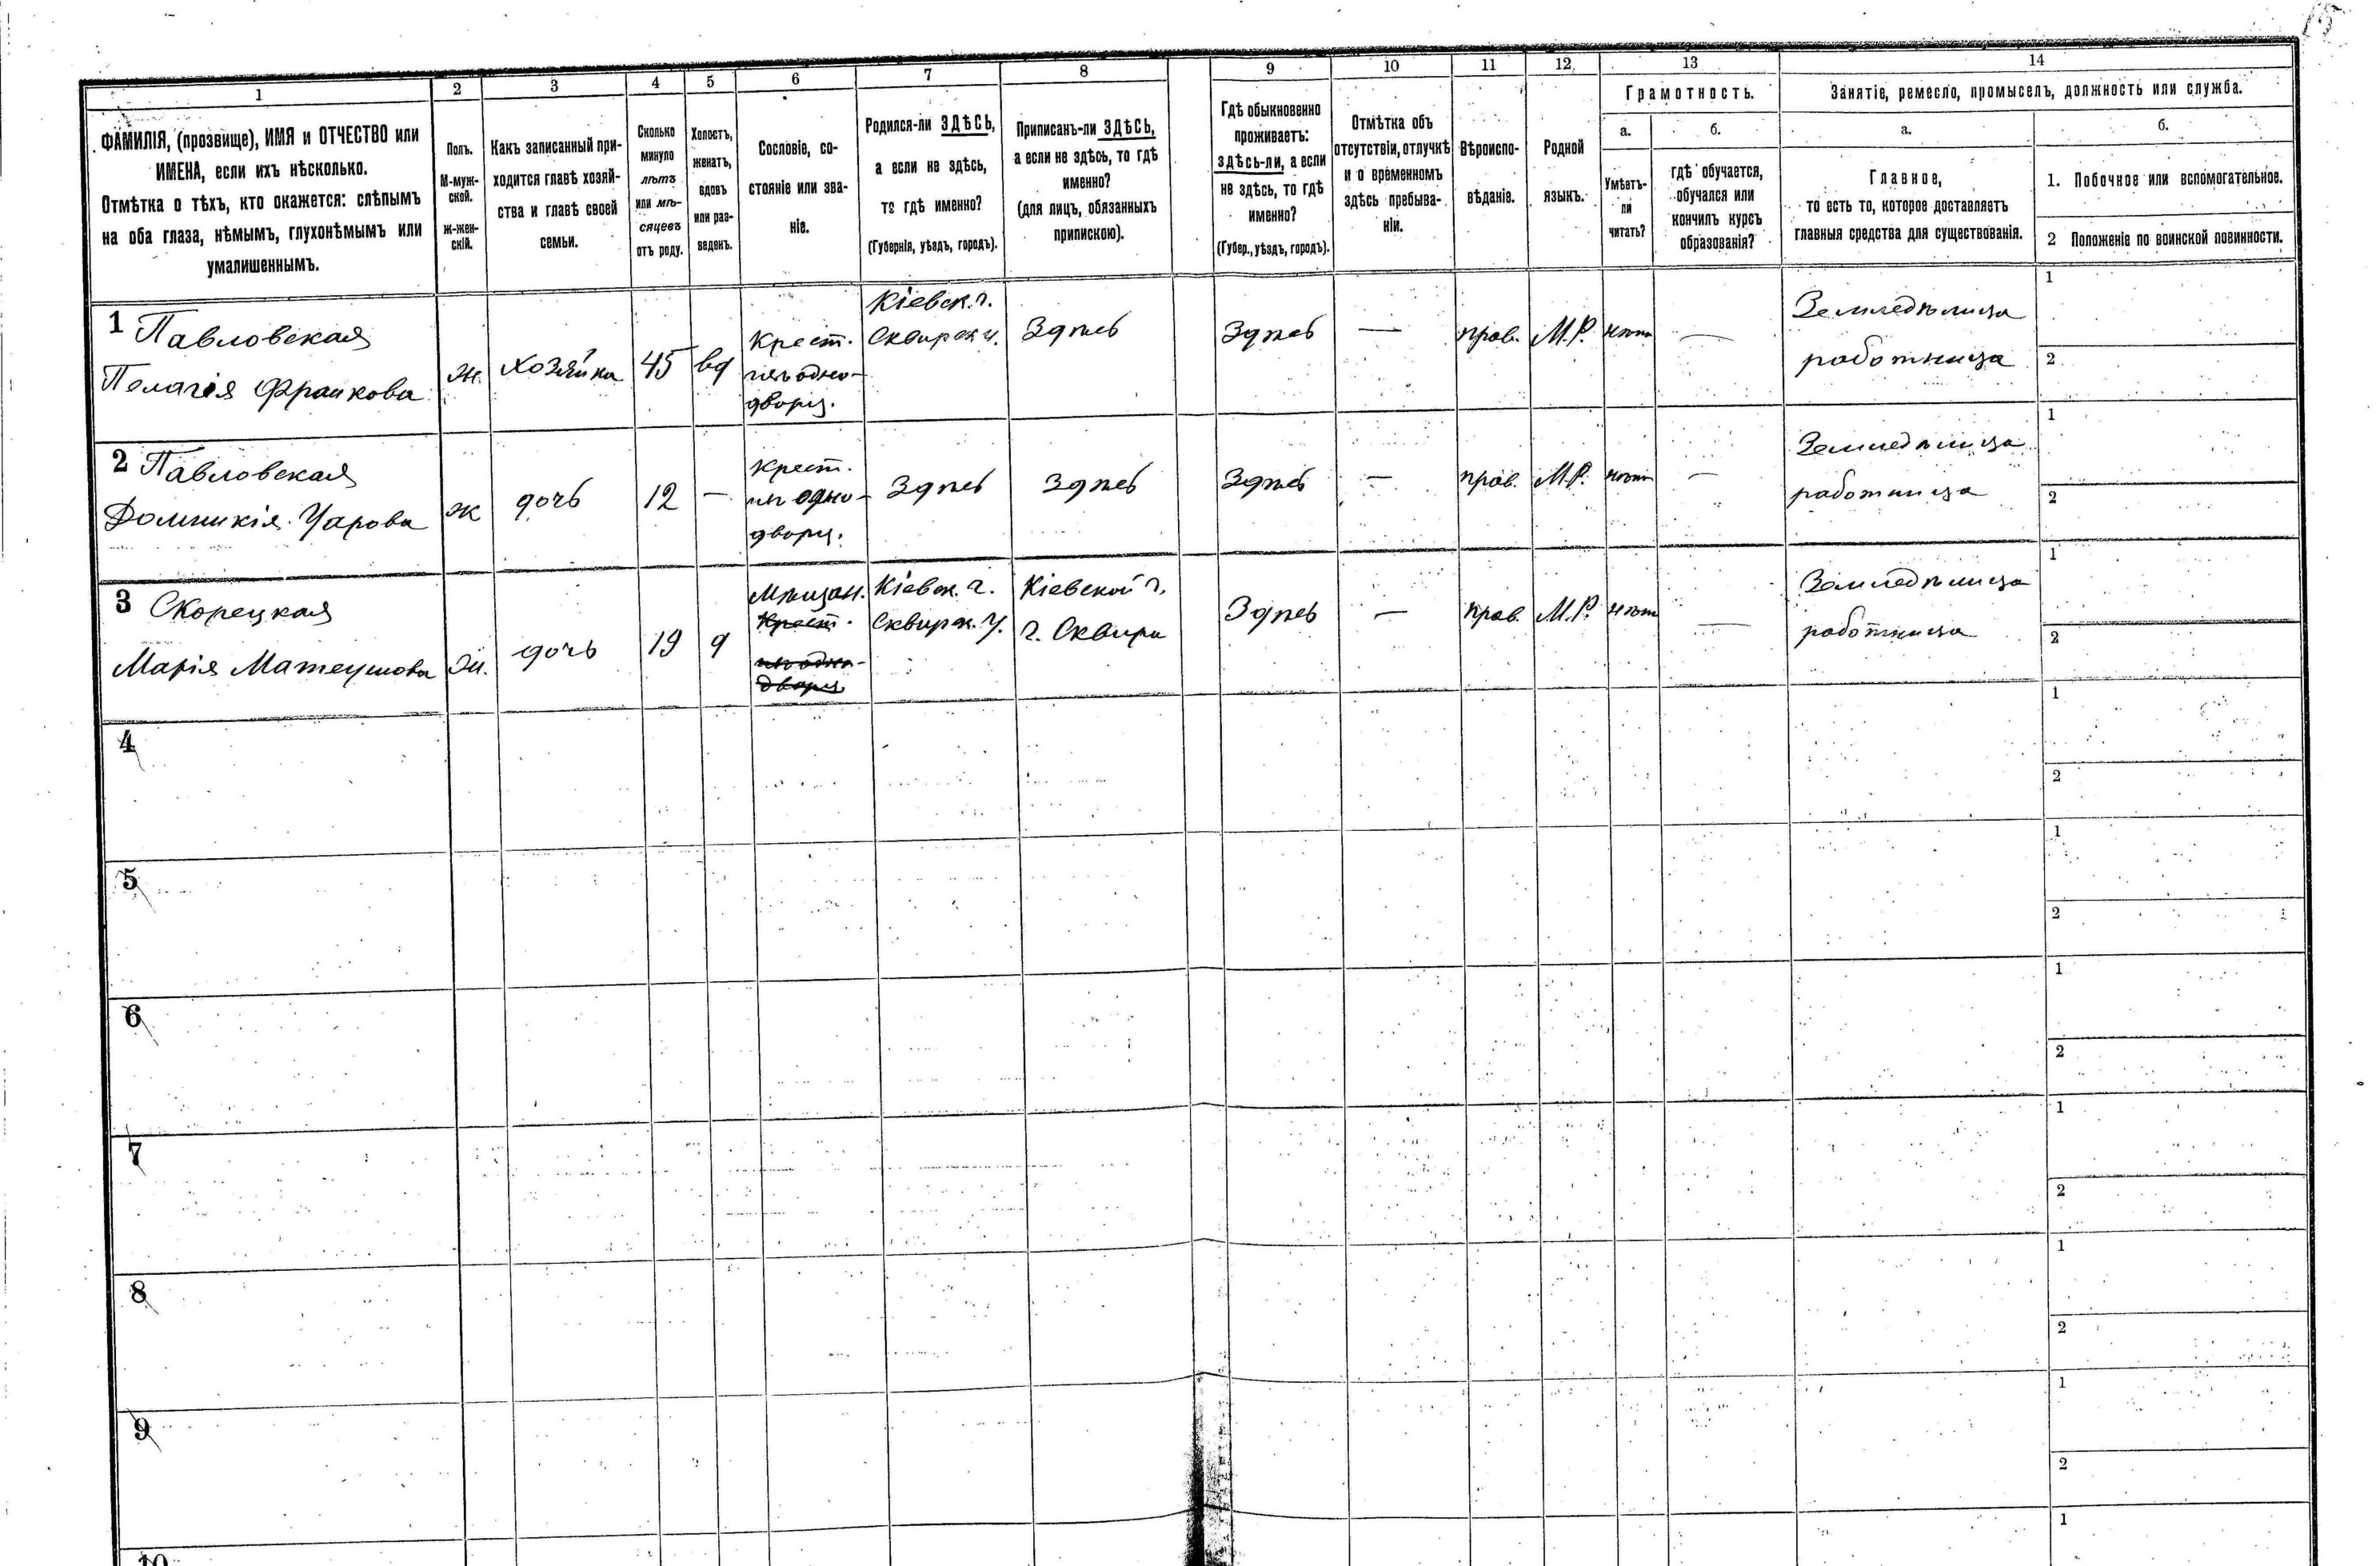 15
1
2
3
4
5
6
7
8
9
10
11
12
13
14
ФАМИЛІЯ, (прозвище), ИМЯ и ОТЧЕСТВО или
ИМЕНА, если ихъ нѣсколько.
Отмѣтка о тѣхъ, кто окажется: слѣпымъ
на оба глаза, нѣмымъ, глухонѣмымъ или
умалишеннымъ.
Полъ.
М-муж-
ской.
ж-жен-
скій.
Какъ записанный при-
ходится главѣ хозяй-
ства и главѣ своей
семьи.
Сколько
минуло
лѣтъ
или мѣ-
сяцевъ
отъ роду.
Холостъ,
женатъ,
вдовъ
или раз-
веденъ.
Сословіе, со-
стояніе или зва-
ніе.
Родился-ли ЗДѢСЬ,
а если не здѣсь,
то гдѣ именно?
(Губернія, уѣздъ, городъ).
Приписанъ-ли ЗДѢСЬ,
а если не здѣсь, то гдѣ
именно?
(для лицъ, обязанныхъ
припискою).
Гдѣ обыкновенно
проживаетъ:
здѣсь-ли, а если
не здѣсь, то гдѣ
именно?
(Губер., уѣздъ, городъ).
Отмѣтка объ
отсутствіи, отлучкѣ
и о временномъ
здѣсь пребыва-
ніи.
Вѣроиспо-
вѣданіе.
Родной
языкъ.
Грамотность.
а.
Умѣетъ-
ли
читать?
б.
гдѣ обучается,
обучался или
кончилъ курсъ
образованія?
Занятіе, ремесло, промыселъ, должность или служба.
а.
Главное,
то есть то, которое доставляетъ
главныя средства для существованія.
б.
1. Побочное или вспомогательное.
2 Положеніе по воинской повинности.
1 Павловская
Пелагія Франкова
ж.
хозяйка
45
вд
Крест.
изъ одно-
дворц.
Кіевск. г.
Сквирск. у.
Здѣсь
Здѣсь
—
прав.
М.Р.
нѣтъ
—
Земледѣлица
работница
1
2
2 Павловская
Домникія Уарова
ж
дочь
12
—
Крест.
изъ одно-
дворц.
Здѣсь
Здѣсь
Здѣсь
—
прав.
М.Р.
нѣтъ
—
Земледѣлица
работница
1
2
3 Скорецкая
Марія Матеушова
ж.
дочь
19
д
Мѣщан.
Крест.
изъ одно-
дворц.
Кіевск. г.
Сквирск. у.
Кіевской г.
г. Сквира
Здѣсь
—
прав.
М.Р.
нѣтъ
—
Земледѣлица
работница
1
2
4
1
2
5
1
2
6
1
2
7
1
2
8
1
2
9
1
2
10
1